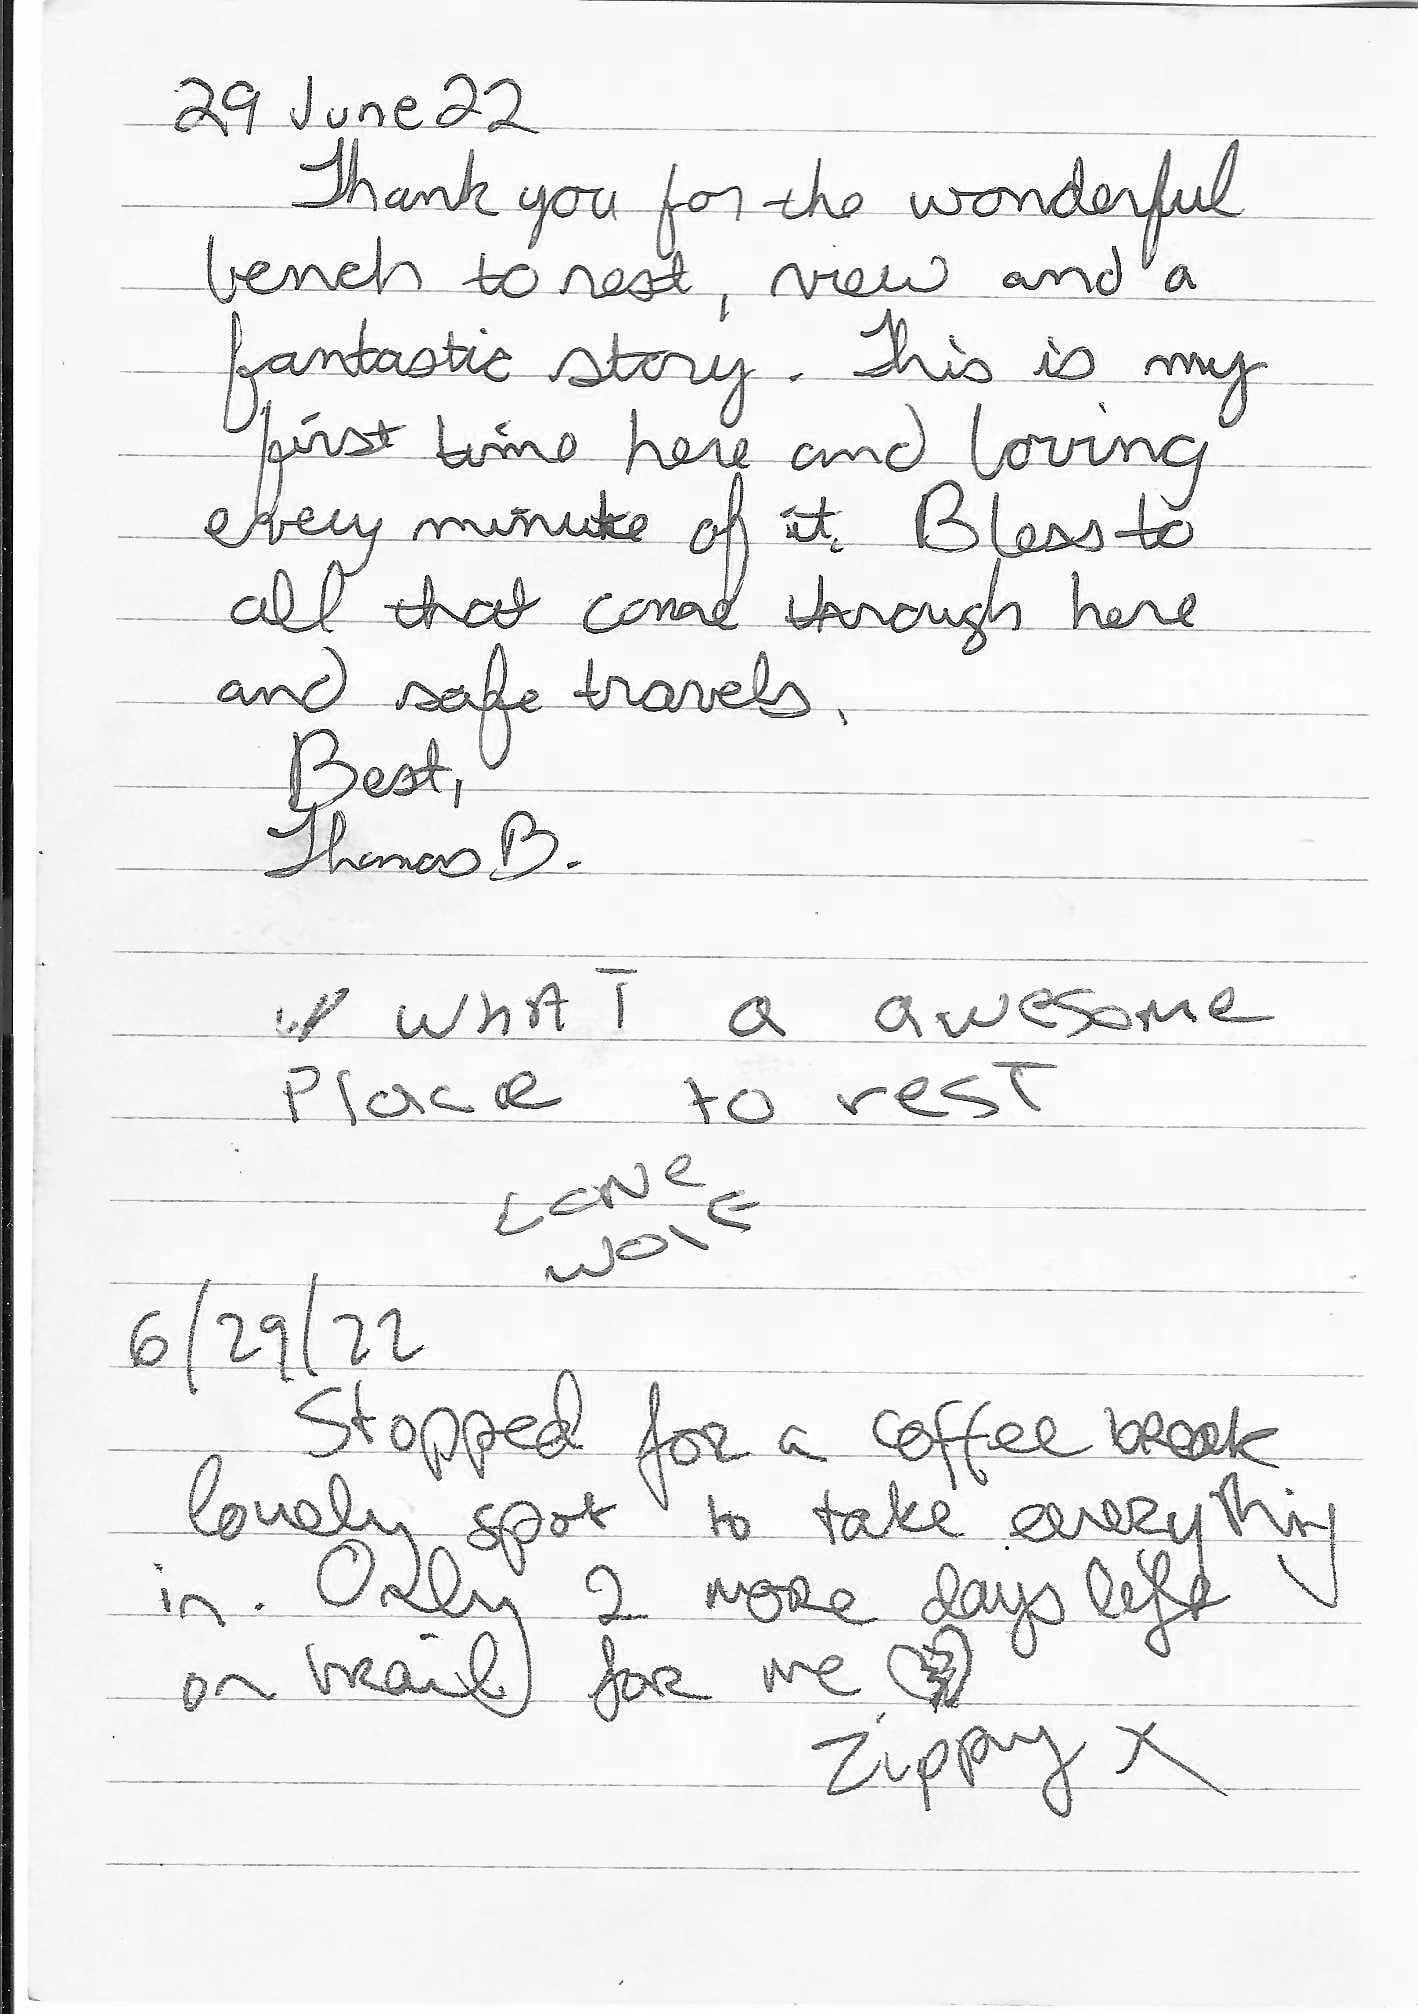 29 June 22
Thank you for the wonderful
bench to rest, view and a
fantastic story. This is my
first time here and loving
every minute of it. Bless to
all that come through here
and safe travels.
Best,
Thomas B.
WhAT a awesome
Place to resT
Lone
Wolf
6/29/22
Stopped for a coffee break
lovely spot to take everything
in. Only 2 more days left
on trail for me
Zippy x